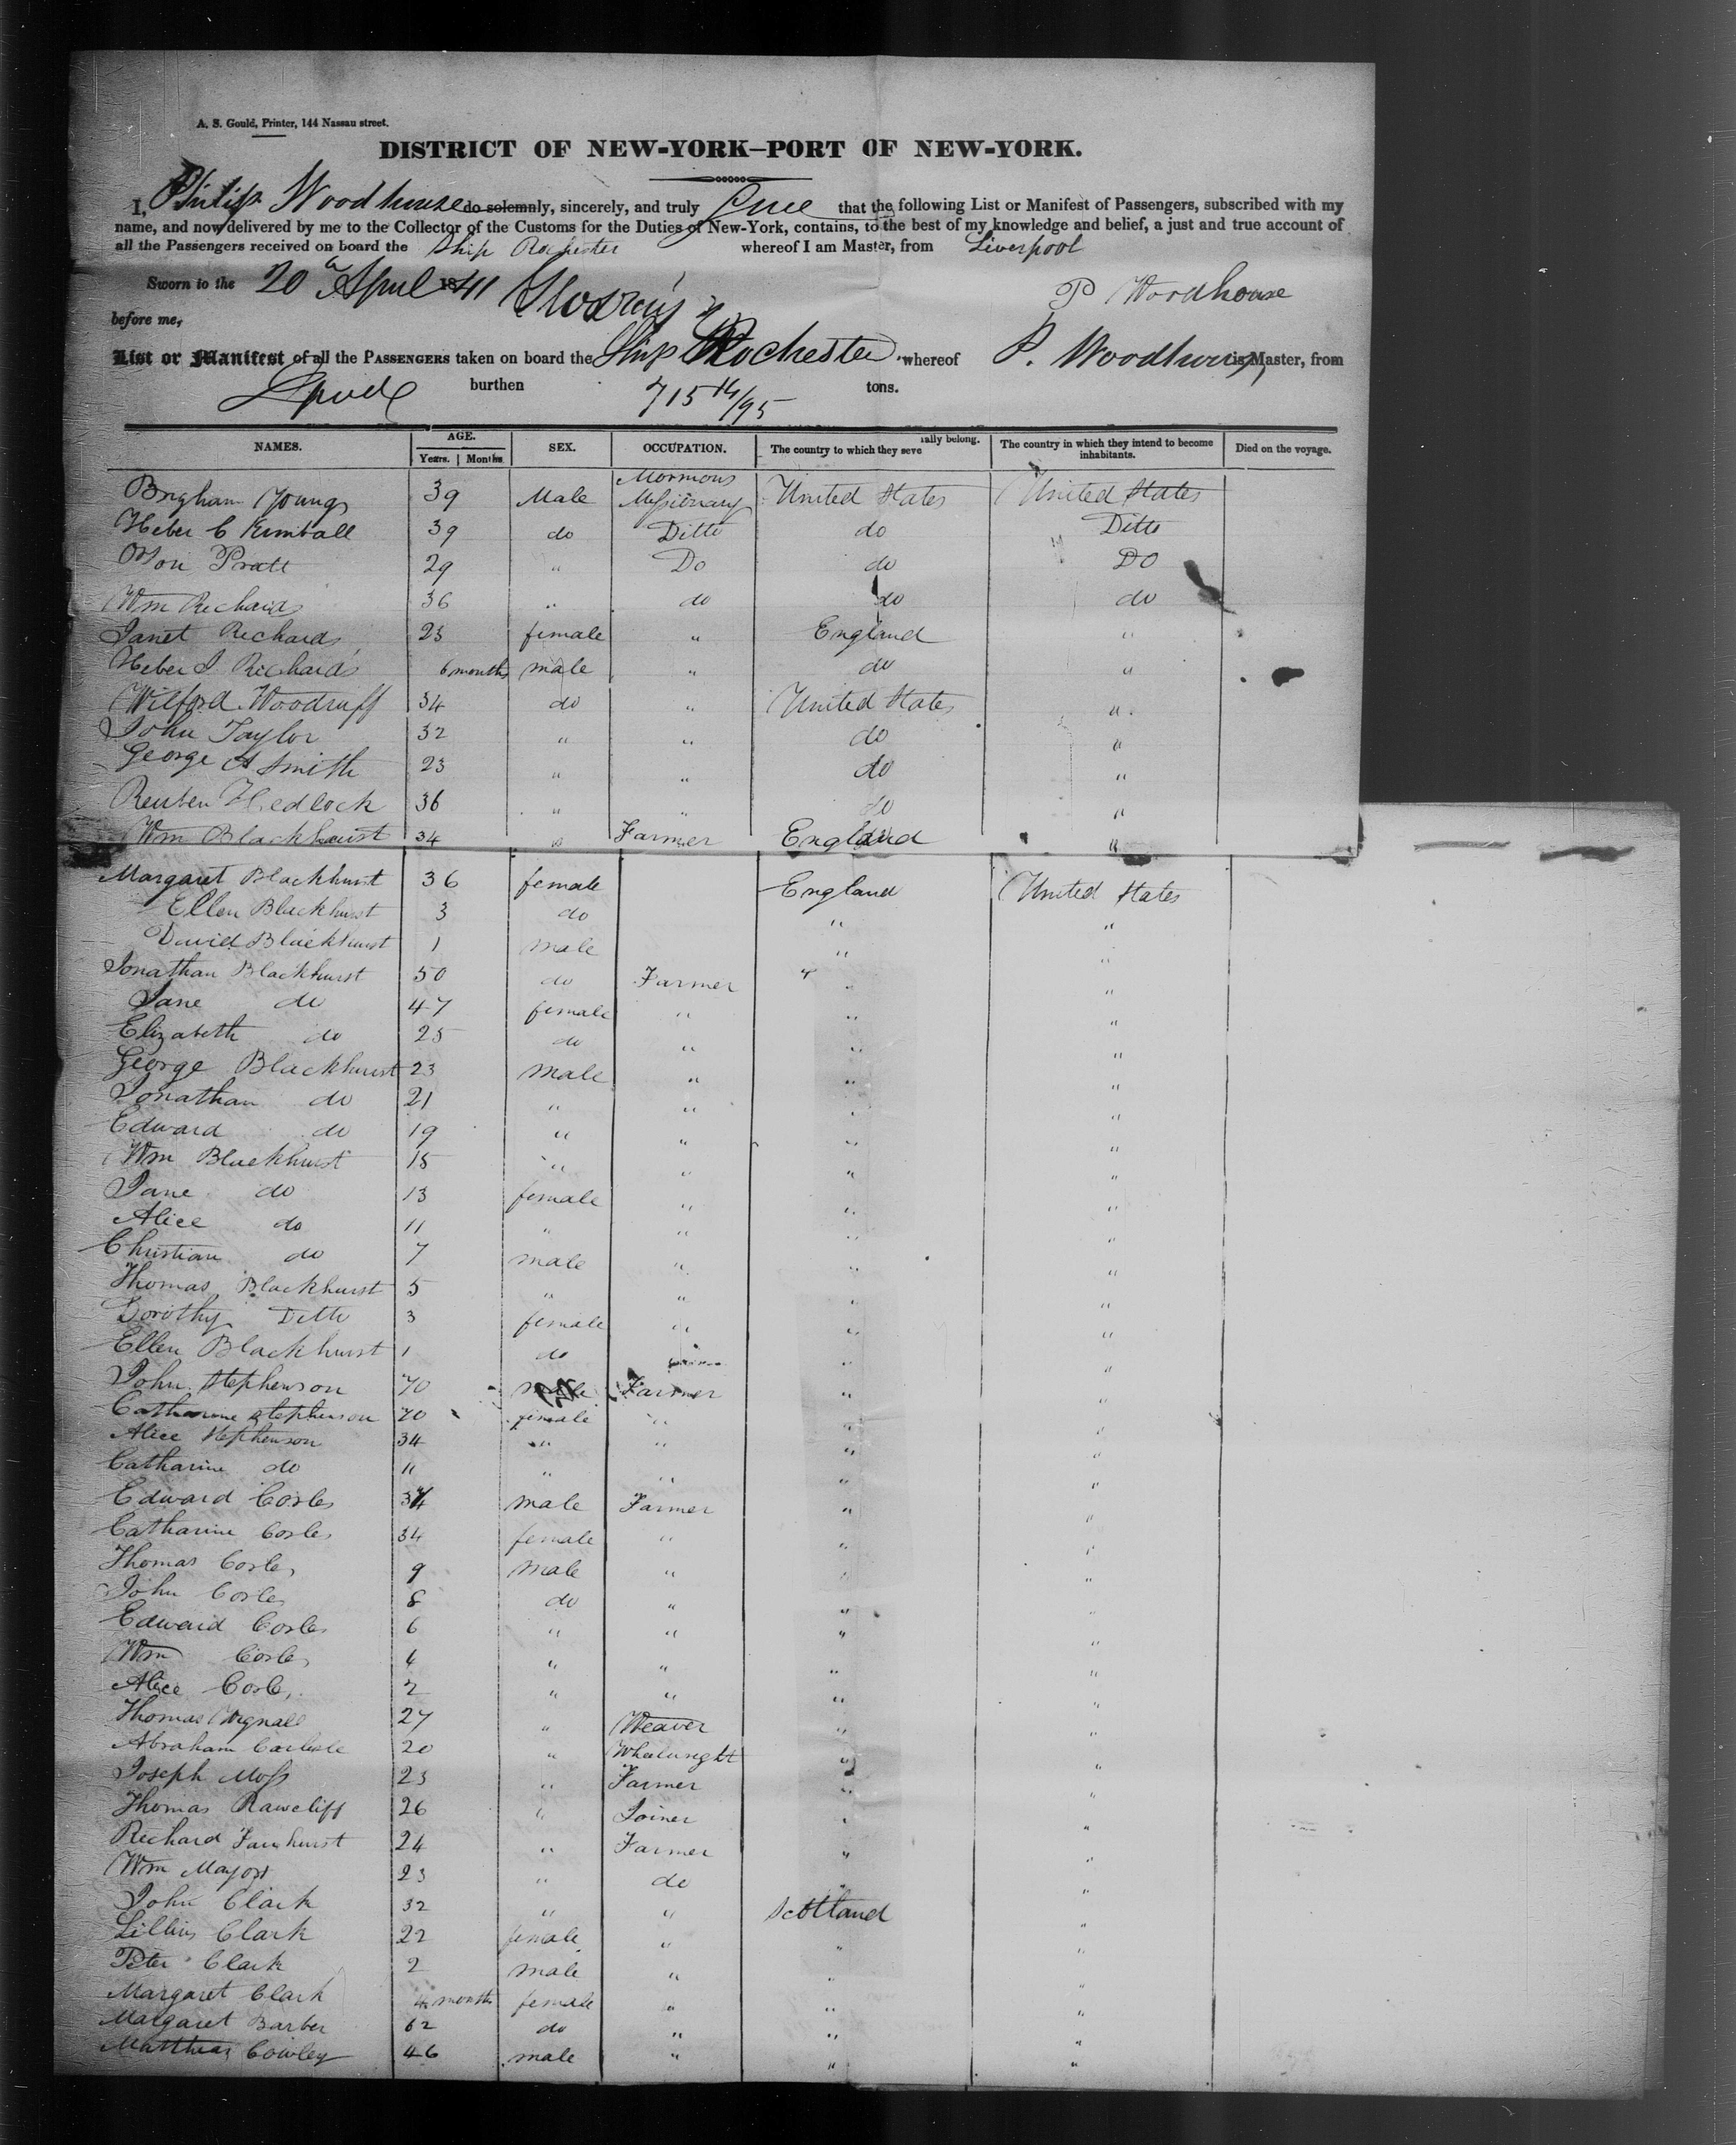 A. S. Gould, Printer, 144 Nassau street.
DISTRICT OF NEW-YORK—PORT OF NEW-YORK.
I, Philip Woodhouse do solemnly, sincerely, and truly that the following List or Manifest of Passengers, subscribed with my
name, and now delivered by me to the Collector of the Customs for the Duties of New-York, contains, to the best of my knowledge and belief, a just and true account of
all the Passengers received on board the Ship Rochester whereof I am Master, from Liverpool
Sworn to the 20th April 1841
P Woodhouse
before me,
List or Manifest of all the PASSENGERS taken on board the Ship Rochester whereof P. Woodhouse is Master, from
Lpool burthen 715 14/95 tons.
NAMES. AGE. Years. Months. SEX. OCCUPATION. The country to which they seve rally belong. The country in which they intend to become inhabitants. Died on the voyage.
Brigham Young 39 Male Mormons Missionary United States United States
Heber C Kimball 39 do Ditto do Ditto
Orson Pratt 29 " Do do Do
Wm Richards 36 " do do do
Janet Richards 23 female " England "
Heber J. Richards 6 months male " do "
Wilford Woodruff 34 do " United States "
John Taylor 32 " " do "
George A Smith 23 " " do "
Reuben Hedlock 36 " " do "
Wm Blackhurst 34 " Farmer England "
Margaret Blackhurst 36 female England United States
Ellen Blackhurst 3 do " "
David Blackhurst 1 male " "
Jonathan Blackhurst 50 do Farmer " "
Jane do 47 female " " "
Elizabeth do 25 do " " "
George Blackhurst 23 male " " "
Jonathan do 21 " " " "
Edward do 19 " " " "
Wm Blackhurst 15 " " " "
Jane do 13 female " " "
Alice do 11 " " " "
Christian do 7 male " " "
Thomas Blackhurst 5 " " " "
Dorothy Ditto 3 female " " "
Ellen Blackhurst 1 do " "
John Stephenson 70 male Farmer " "
Catharine Stephenson 70 female " " "
Alice Stephenson 34 " " " "
Catharine do 11 " " " "
Edward Corles 34 male Farmer " "
Catharine Corles 34 female " " "
Thomas Corles 9 male " " "
John Corles 8 do " " "
Edward Corles 6 " " " "
Wm Corles 4 " " " "
Alice Corles 2 " " " "
Thomas 27 " Weaver " "
Abraham Carlisle 20 " Wheelwright " "
Joseph Moss 23 " Farmer " "
Thomas Rawcliff 26 " Joiner " "
Richard Fairhurst 24 " Farmer " "
Wm Mayor 23 " do " "
John Clark 32 " " Scotland "
Lillius Clark 22 female " " "
Peter Clark 2 male " " "
Margaret Clark 4 months female " " "
Margaret Barber 62 do " " "
Matthias Cowley 46 male " " "